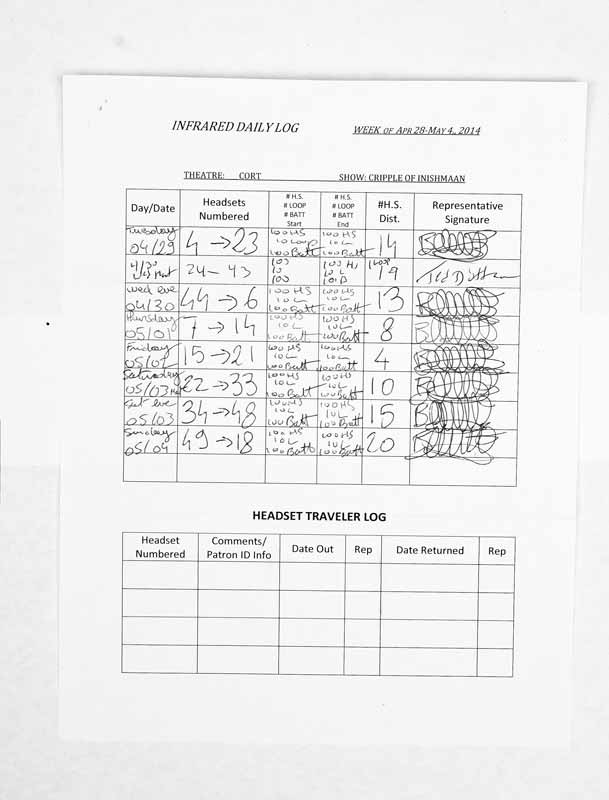 INFRARED DAILY LOG WEEK OF APR 28-MAY 4., 2014
THEATRE: CORT SHOW: CRIPPLE OF INISHMAAN
Day/Date Headsets Numbered # H.S. # LOOP # BATT Start # H.S. # LOOP # BATT End #H.S. Dist. Representative Signature
Tuesday 04/29 4 → 23 100HS 10 Loop 100Batt 100HS 10L 100Batt 14
4/30 Wed Mat 24 - 43 100 10 100 100 HS 10 L 100 19
Wed eve 04/30 44 → 6 100HS 10L 100Batt 100HS 10L 100Batt 13
Thursday 05/01 7 → 14 100HS 10L 100Batt 100HS 10L 100Batt 8
Friday 15 → 21 100HS 10L 100Batt 100HS 10L 100Batt 4
Saturday 05/03 Mat 22 → 33 100HS 10L 100Batt 100HS 10L 100Batt 10
Sat eve 05/03 34 → 48 100HS 10L 100Batt 100HS 10L 100Batt 15
Sunday 05/04 49 → 18 100HS 10L 100Batt 100HS 10L 100Batt 20
HEADSET TRAVELER LOG
Headset Numbered Comments/ Patron ID Info Date Out Rep Date Returned Rep